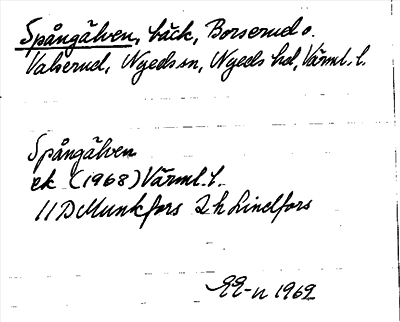 Spångälven, bäck, Borserud o.
Valserud, Nyeds sn, Nyeds hd, Värml. l.
Spångälven
ek (1968) Värml. l.
11D Munkfors 2 h Lindfors
EE-n 1969